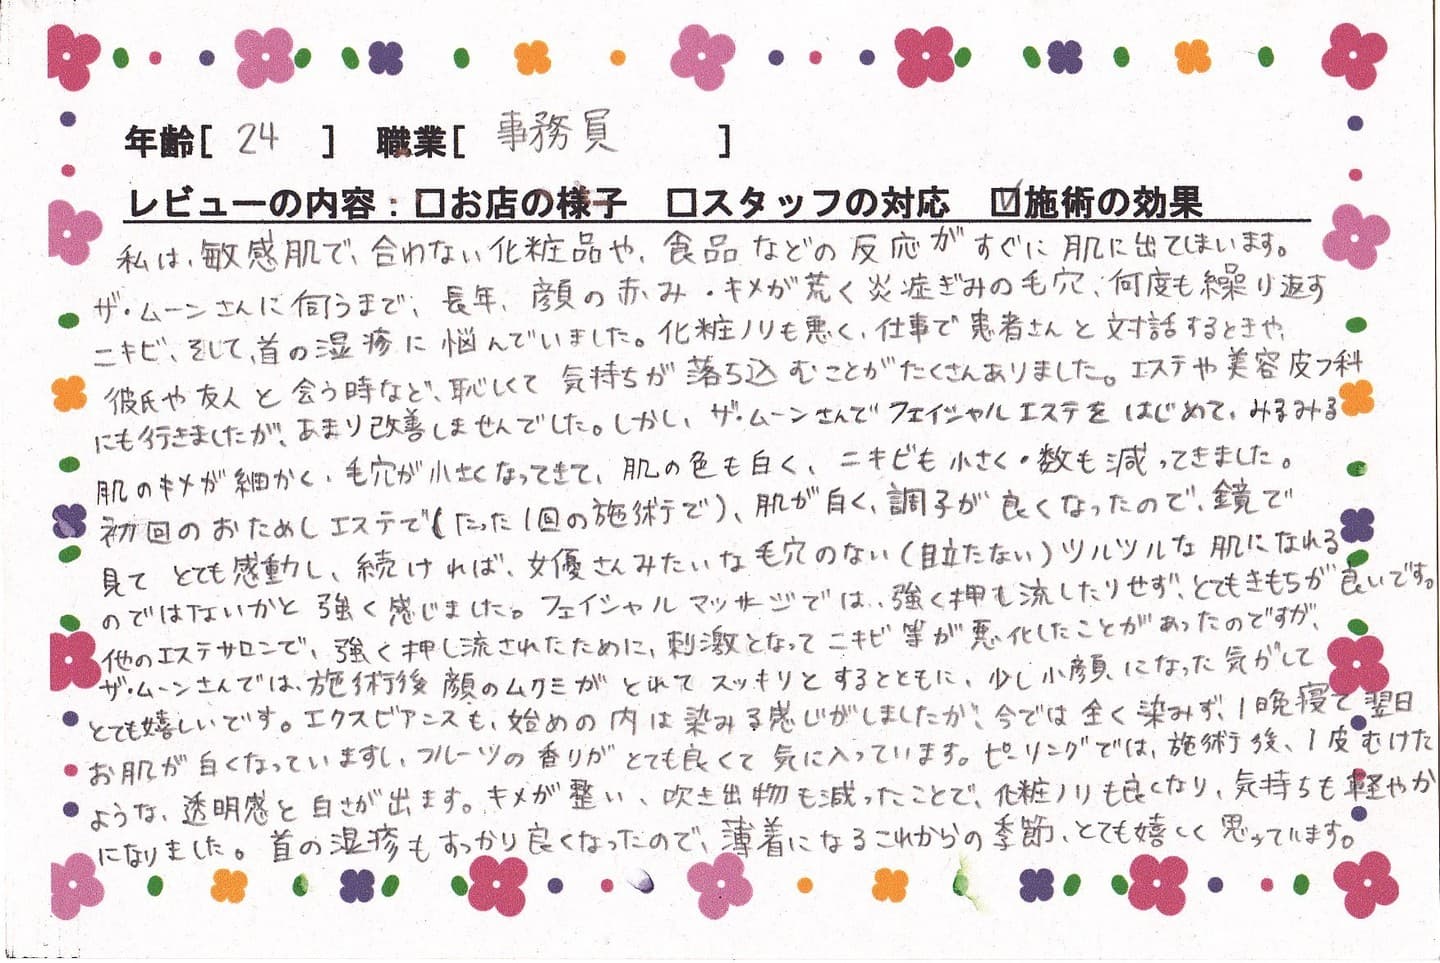 年齢[ 24 ] 職業[ 事務員 ]
レビューの内容：□お店の様子 □スタッフの対応 ☑施術の効果
私は、敏感肌で、合わない化粧品や、食品などの反応がすぐに肌に出てしまいます。
ザ・ムーンさんに伺うまで、長年、顔の赤み・キメが荒く炎症ぎみの毛穴、何度も繰り返す
ニキビ、そして、首の湿疹に悩んでいました。化粧ノリも悪く、仕事で患者さんと対話するときや、
彼氏や友人と会う時など、恥しくて気持ちが落ち込むことがたくさんありました。エステや美容皮フ科
にも行きましたが、あまり改善しませんでした。しかし、ザ・ムーンさんでフェイシャルエステをはじめて、みるみる
肌のキメが細かく、毛穴が小さくなってきて、肌の色も白く、ニキビも小さく・数も減ってきました。
初回のおためしエステで(たった1回の施術で)、肌が白く、調子が良くなったので、鏡で
見てとても感動し、続ければ、女優さんみたいな毛穴のない(目立たない)ツルツルな肌になれる
のではないかと強く感じました。フェイシャルマッサージでは、強く押し流したりせず、とてもきもちが良いです。
他のエステサロンで、強く押し流されたために、刺激となってニキビ等が悪化したことがあったのですが、
ザ・ムーンさんでは、施術後顔のムクミがとれてスッキリとするとともに、少し小顔になった気がして
とても嬉しいです。エクスビアンスも、始めの内は染みる感じがしましたが、今では全く染みず、1晩寝て翌日
お肌が白くなっていますし、フルーツの香りがとても良くて気に入っています。ピーリングでは、施術後、1皮むけた
ような、透明感と白さが出ます。キメが整い、吹き出物も減ったことで、化粧ノリも良くなり、気持ちも軽やか
になりました。首の湿疹もすっかり良くなったので、薄着になるこれからの季節、とても嬉しく思っています。